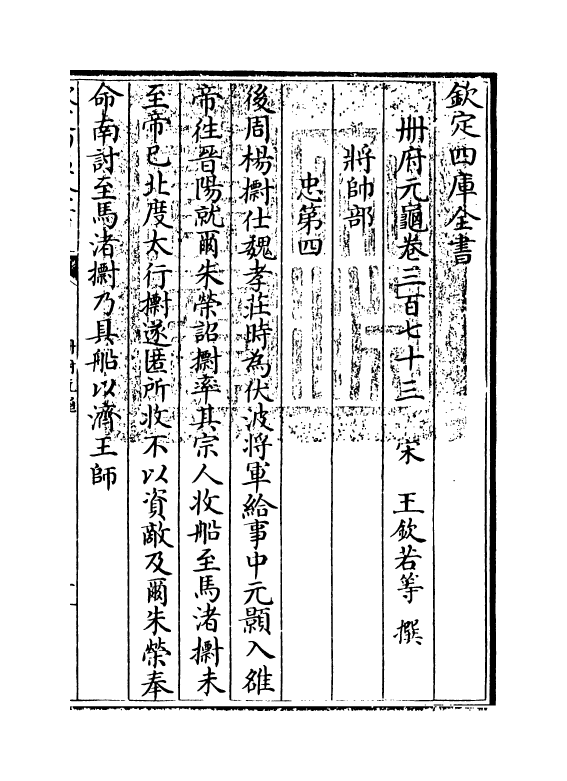 欽定四庫全書
冊府元龜卷三百七十三 宋 王欽若等 撰
將帥部
忠第四
後周楊㯹仕魏孝莊時為伏波將軍給事中元顥入雒
帝往晉陽就爾朱榮詔㯹率其宗人收船至馬渚㯹未
至帝已北度太行㯹遂匿所收不以資敵及爾朱榮奉
命南討至馬渚㯹乃具船以濟王師